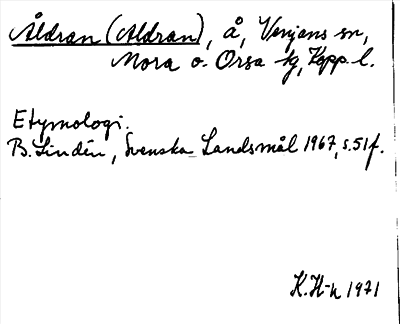 Åldran (Aldran), å, Venjans sn,
Mora o. Orsa tg, Kopp. l.
Etymologi.
B. Lindén, Svenska Landsmål 1967, s. 51 f.
K. H-n 1971